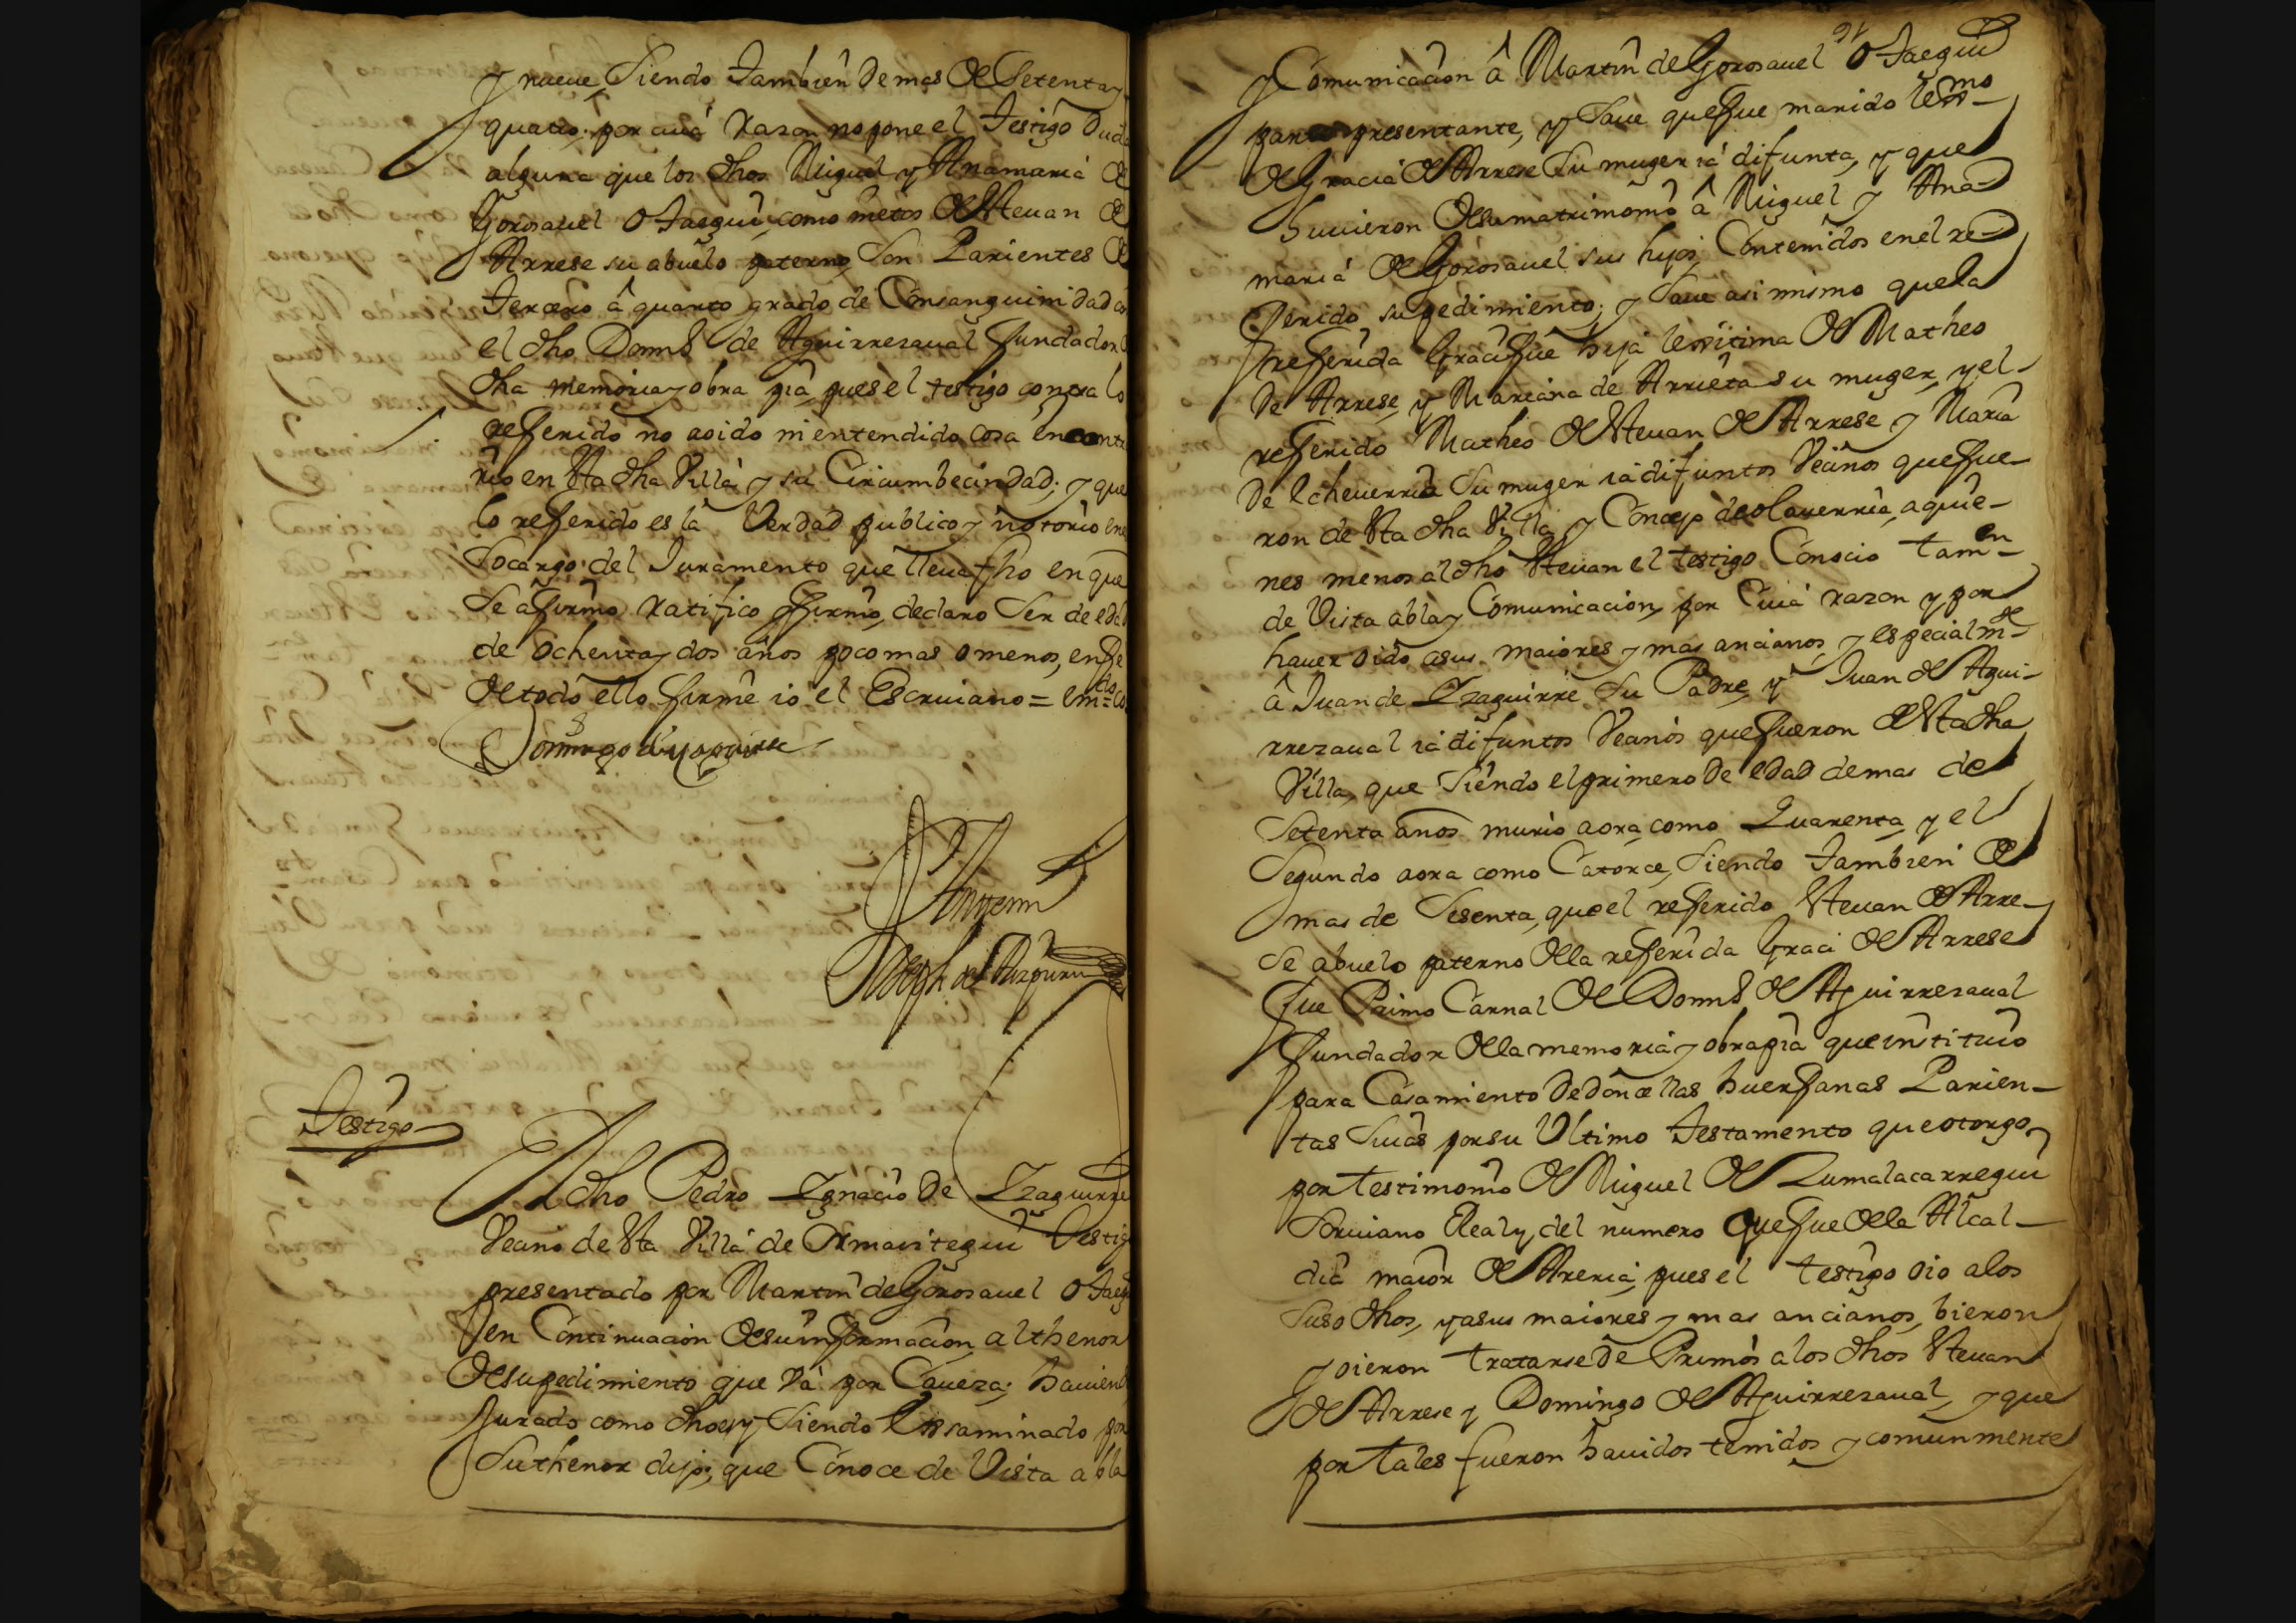 y nueve, siendo tambien de mas de setenta y
quatro; por cuia razon no pone el testigo duda
alguna que los dhos Miguel y Anamaria de
Gorosauel Otaegui, como nietos de Esteuan de
Arrese su abuelo paterno, son Parientes de
tercero â quarto grado de Consanguinidad con
el dho Domᵒ de Aguirrezaual fundador de
dha memoria y obra pia, pues el testigo contra lo
refferido no aoido ni entendido cosa en contra
rio en esta dha Villa y su Circumbecindad; y que
lo refferido es la Verdad publico y notorio en
socargo del Juramento que lleua fho en que
se afirmo ratifico y firmo, declaro ser de edad
de ochenta y dos años poco mas o menos, en fee
de todo ello firme io el Escriuano = em.do = co
Domingo de Yzaguirre
Antemi
Joseph de Aizpuru
Testigo
El dho Pedro Ygnacio de Yzaguirre
Vecino de esta Villa de Ormaiztegui testigo
presentado por Martin de Gorosauel Otaegui
en Continuacion de su informacion, al thenor
de su pedimiento que va por Caueza; hauiendo
Jurado como dho es, y siendo Exsaminado por
su thenor dijo; que Conoce de Vista abla
y Comunicacion â Martin de Gorosauel Otaegui
parte presentante, y saue que fue marido lexmo
de Gracia de Arrese su muger ia difunta, y que
huuieron de su matrimonio â Miguel y Ana
maria de Gorosauel sus hijos Contenidos en el re
ferido su pedimiento; y saue asimismo que la
refferida Gracia fue hija lexitima de Matheo
de Arrese, y Mariana de Arrieta su muger, y el
refferido Matheo de Esteuan de Arrese y Maria
de Echeuerria su muger ia difuntos Vecinos que fue-
ron de esta dha Villa, y Concejo de olauerria, aquie-
nes menos al dho Esteuan el testigo Conocio tamen
de Vista abla y Comunicacion, por Cuia razon y por
hauer oido asus maiores y mas ancianos, y especialmte
â Juan de Yzaguirre su Padre, y Juan de Agui-
rrezaual ia difuntos Vecinos que fueron de esta dha
Villa, que siendo el primero de edad demas de
setenta años murio aora como Quarenta, y el
segundo aora como Catorce, siendo tambien de
mas de sesenta, que el refferido Esteuan de Arre-
se abuelo paterno de la refferida Gracia de Arrese
fue Primo Carnal de Domᵒ de Aguirrezaual
fundador de la memoria y obra pia que instituio
para Casamiento de doncellas huerfanas Parien-
tas suias por su Ultimo testamento que otorgo
por testimonio de Miguel de Zumalacarregui
Escriuano Real y del numero que fue de la Alcal-
dia maior de Areria, pues el testigo oio alos
suso dhos, y asus maiores y mas ancianos, bieron
y oieron tratarse de Primos a los dhos Esteuan
de Arrese y Domingo de Aguirrezaual, y que
por tales fueron hauidos tenidos y comunmente